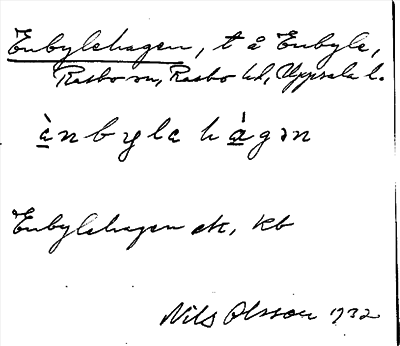 Enbylehagen, t å Enbyle,
Rasbo sn, Rasbo hd, Uppsala l.
ènbyla hágən
Enbylehagen ek, kb
Nils Olsson 1932